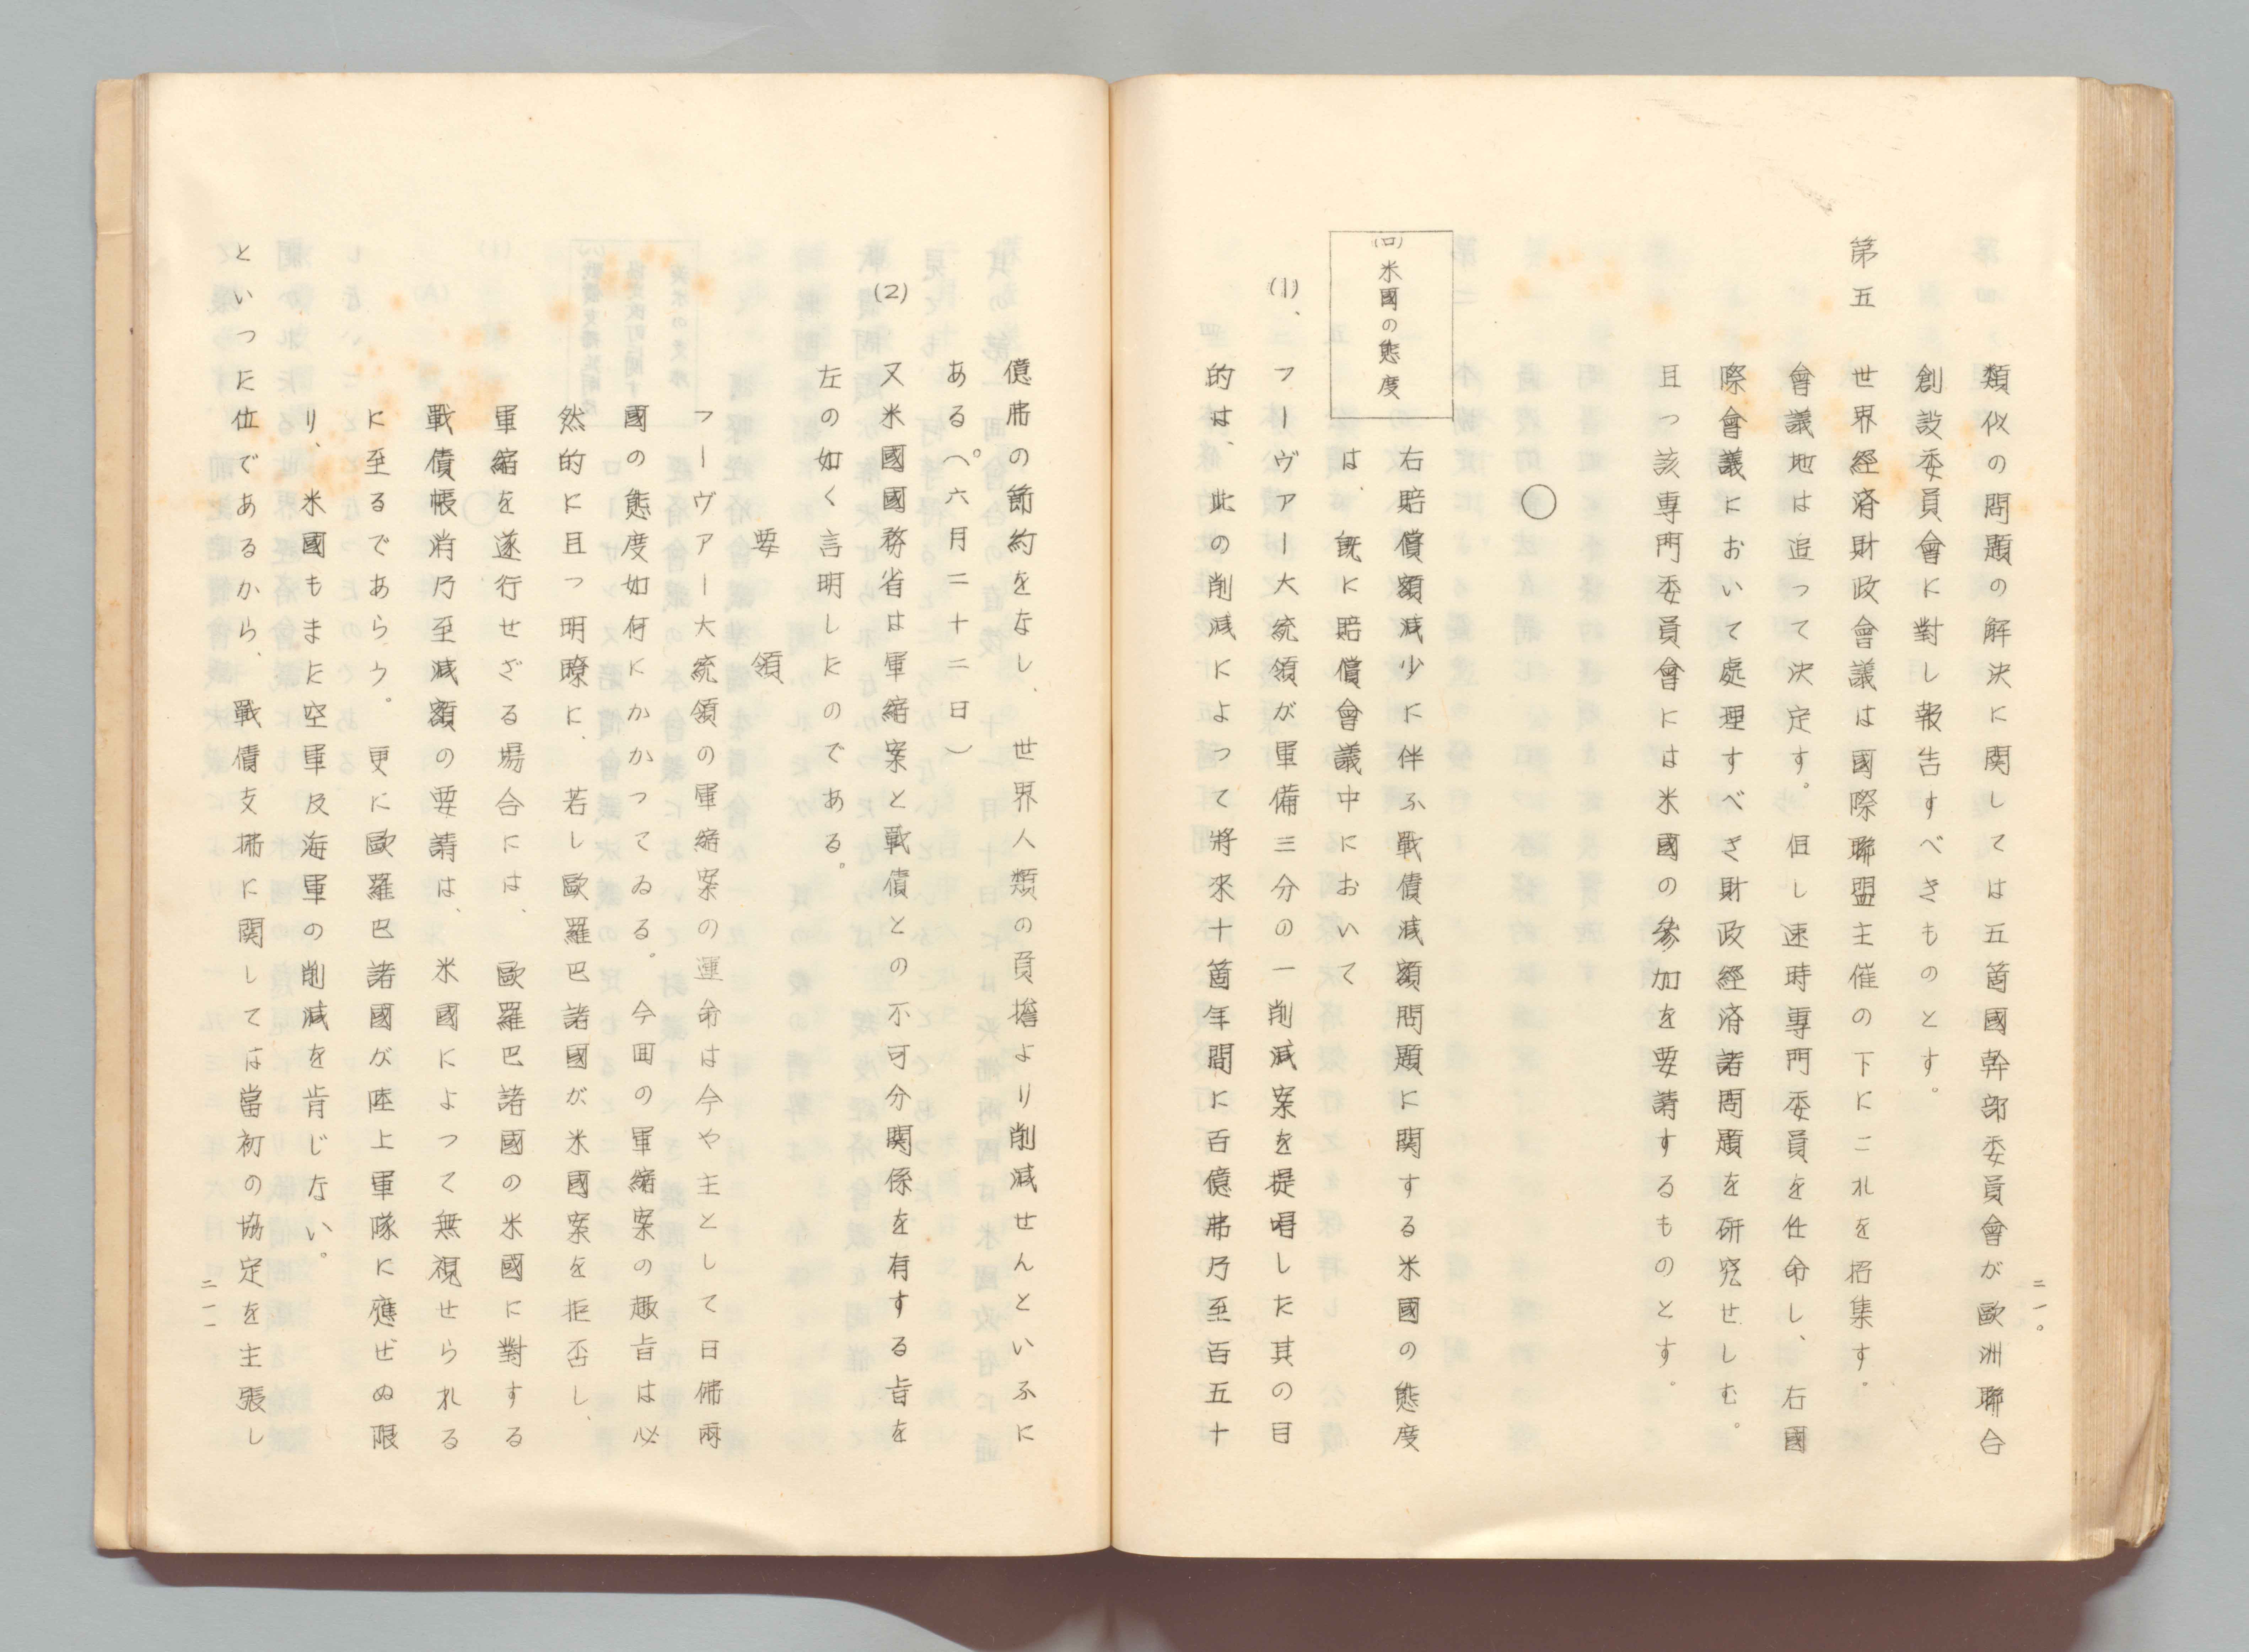 類似の問題の解決に関しては五箇國幹部委員會が歐洲聯合
創設委員會に對し報告すべきものとす。
第五　世界經済財政會議は國際聯盟主催の下にこれを招集す。
會議地は追って決定す。但し速時專門委員を任命し、右國
際會議において處理すべき財政經済諸問題を研究せしむ。
且つ該專門委員會には米國の參加を要請するものとす。
○
(ロ)米國の態度
右賠償額減少に伴ふ戰債減額問題に関する米國の態度
は、既に賠償會議中において
(1)、フーヴァー大統領が軍備三分の一削減案を提唱した其の目
的は、此の削減によって將來十箇年間に百億弗乃至百五十
二一〇
億弗の節約をなし、世界人類の負擔より削減せんといふに
ある。(六月二十二日)
(2)　又米國國務省は軍縮案と戰債との不可分関係を有する旨を
左の如く言明したのである。
要領
フーヴァー大統領の軍縮案の運命は今や主として日佛兩
國の態度如何にかかってゐる。今囬の軍縮案の趣旨は必
然的に且つ明瞭に、若し歐羅巴諸國が米國案を拒否し、
軍縮を遂行せざる場合には、歐羅巴諸國の米國に對する
戰債帳消乃至減額の要請は、米國によって無視せられる
に至るであらう。更に歐羅巴諸國が陸上軍隊に應ぜぬ限
り、米國もまた空軍及海軍の削減を肯じない。
といった位であるから、戰債支拂に関しては當初の協定を主張し
二一一